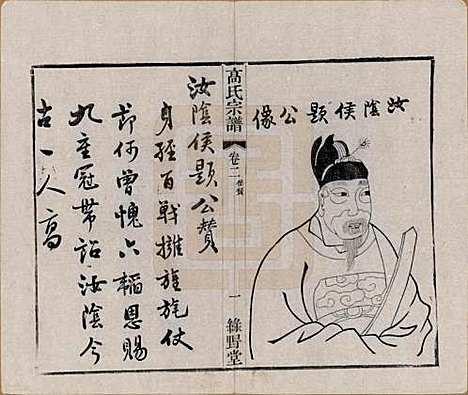 汝陰侯題公像
高氏宗譜
卷二
像贊
一
綠野堂
汝陰侯題公贊
身經百戰擁旌旄仗
節何曾愧六韜恩賜
九重冠帶詔汝陰今
古一人高